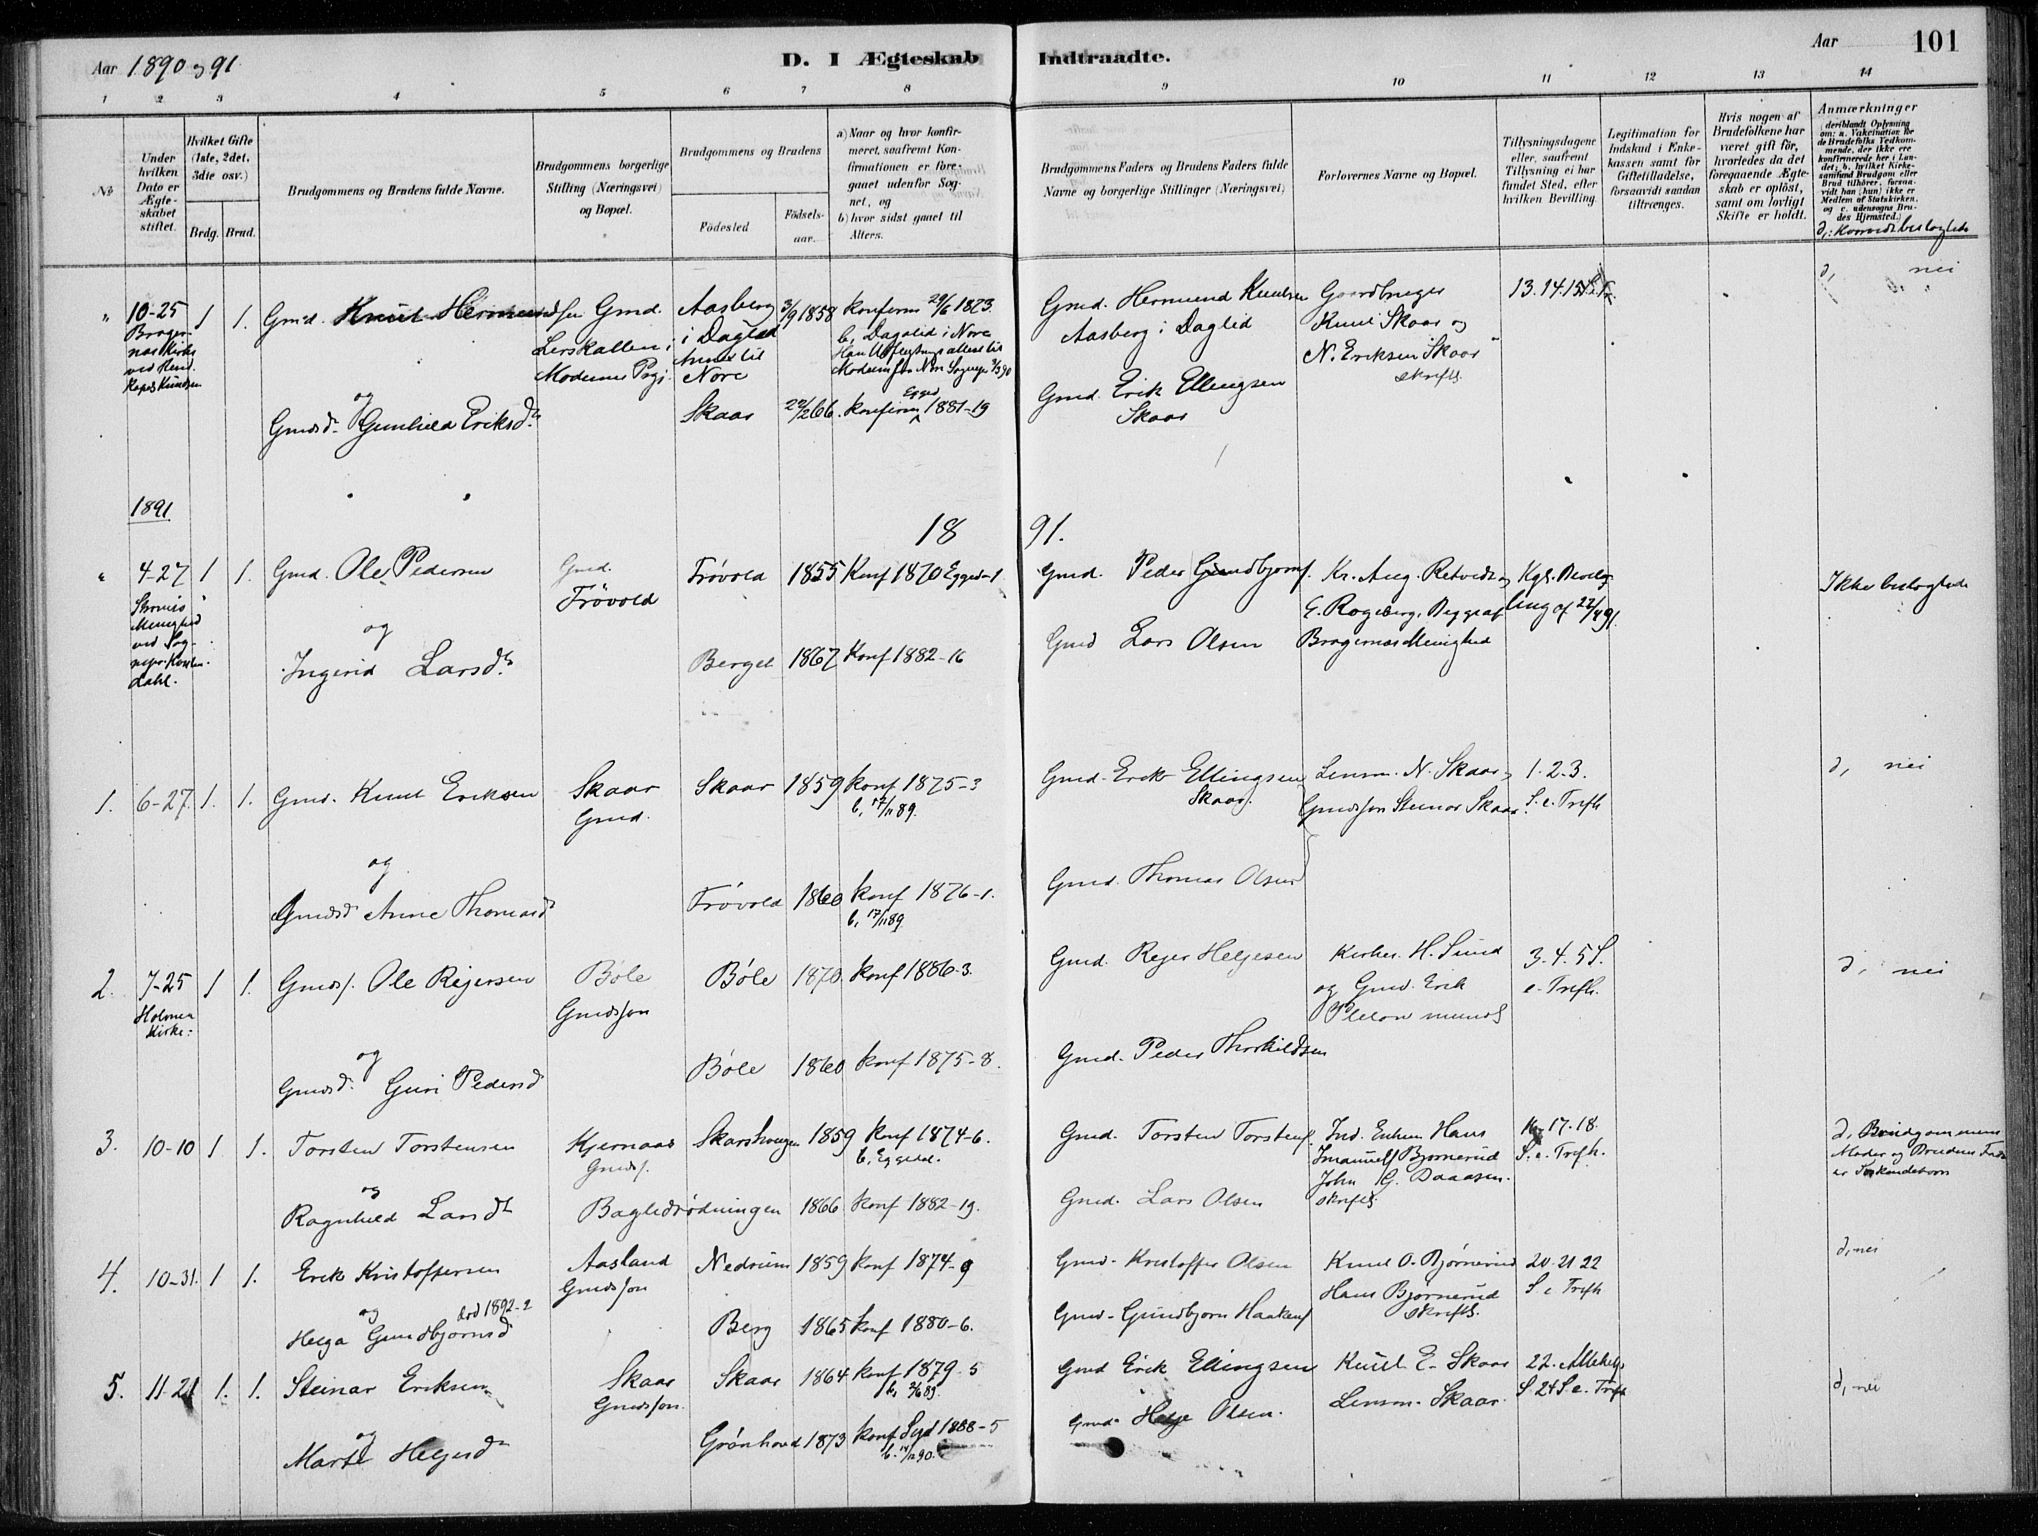 Aar 1890 og 91.
D. I Ægteskab Indtraadte.
Aar
101
1 2 3 4 5 6 7 8 9 10 11 12 13 14
No
Under hvilken Dato er Ægteskabet stiftet.
Hvilket Gifte (1ste, 2det, 3die osv.)
Brdg. Brud.
Brudgommens og Brudens fulde Navne.
Brudgommens borgerlige Stilling (Næringsvei) og Bopæl.
Brudgommens og Brudens
Fødested
Fødselsaar.
a) Naar og hvor konfirmeret, saafremt Konfirmationen er foregaaet udenfor Sognet, og
b) hvor sidst gaaet til Alters.
Brudgommens Faders og Brudens Faders fulde Navne og borgerlige Stillinger (Næringsvei)
Forlovernes Navne og Bopæl.
Tillysningsdagene eller, saafremt Tillysning ei har fundet Sted, efter hvilken Bevilling.
Legitimation for Indskud i Enkekassen samt for Giftetilladelse, forsaavidt saadan tiltrænges.
Hvis nogen af Brudefolkene har været gift før, hvorledes da det foregaaende Ægteskab er opløst, samt om lovligt Skifte er holdt.
Anmærkninger
(deriblandt Oplysning om: a. Vakcination for de Brudefolks Vedkommende, der ikke ere konfirmerede her i Landet; b. hvilket Kirkesamfund Brudgom eller Brud tilhører, forsaavidt han (hun) ikke er Medlem af Statskirken, og c. udensogns Brudes Hjemsted.)
d, : Hvorvidt beslægtede
" 10-25 1 1. Gmd. Knut Hermundsen Gmd. Aasberg 3/9 1858 konfirm 29/6 1873. Gmd. Hermund Knutsen Gaardbruger 13.14.15 d, nei
Bragernæs Kirke ved Resd. Kap. Knudsen
Lerskallen i Modums Prgj.
i Daglid Annex til Nore
b, Dagalid i Nore
Aasberg i Daglid
Knut Skaar og
N. Eriksen Skaar
skriftl.
og
Gmdsdr. Gunhild Eriksdr. Skaar 22/2 66. konfirm Egged. 1881-19 Gmd. Erik Ellingsen
Skaar
1891
18 91.
" 4-27 1 1. Gmd. Ole Pedersen Gmd. Frøvold 1855 Konf 1870 Egged-1 Gmd. Peder Gundbjørns. Kr. Aug. Retvedt og Kgl. Bevilling af 22/4 91. Ikke beslægtede
Strømsø Menighed ved
Frøvold
Bragernæs Menighed
og
Ingerid Larsdr. Berget 1867 Konf 1882-16 Gmd Lars Olsen
1. 6-27. 1. 1. Gmd. Knut Eriksen Skaar Skaar 1859 konf 1875-3 Gmd. Erik Ellingsen Lensm. N. Skaar og 1.2.3. d, nei
Gmd. b, 17/11 89. Skaar. Gmdsøn Steinar Skaar S. e. Trefh
og
Gmdsd Anne Thomasd Frøvold 1860 konf 1876-1. Gmd. Thomas Olsen
b, 17/11 89.
2. 7-25 1 1. Gmds. Ole Reiersen Bøle Bøle 1870. konf 1886-3. Gmd. Reier Helgesen Kirkes. H. Sund 3.4.5 S. d, nei
Holmen Kirke: Gmdsøn og Gmd. Erik e. Trefh.
og
Gmdsd. Guri Pedersd Bøle 1860 konf 1875-8. Gmd. Peder Thorkildsen
3. 10-10 1 1. Torsten Torstensen Kjernaas Skarshaugen 1859 konf 1874-6. Gmd. Torsten Torstens. Ind. Enkem. Hans 16-17-18. d, Brudgommens
Gmds. b, Eggedal. Imanuels Bjørnerud S. e. Trefh. Moder og Brudens Fader
og John G. Daaasen. er Søskendebørn
Ragnhild Larsdr Baglidrødningen 1866 konf 1882-19. Gmd. Lars Olsen skriftl.
4. 10-31. 1 1. Erik Kristoffersen Aasland Nedrum 1859 konf 1874-9 Gmd. Kristoffer Olsen Knut O. Bjørnerud 20 21 22 d, nei
Gmdsøn Hans Bjørnerud S. e Trefh
og død 1892-2 skriftl.
Helga Gundbjørnsd Berg 1865 konf 1880-6. Gmd. Gundbjørn Haakens
5. 11-21 1. 1. Steinar Eriksen Skaar Skaar 1864 konf 1879-5 Gmd Erik Ellingsen Knut E. Skaar 22. Allehelg. d, nei
Gmdsøn. Lensm. Skaar. S. 24 S. e. Trefh
og
Marte Helgesdr Grønhovd 1873 konf Sigd 1888-5 Gmd. Helge Olsen.